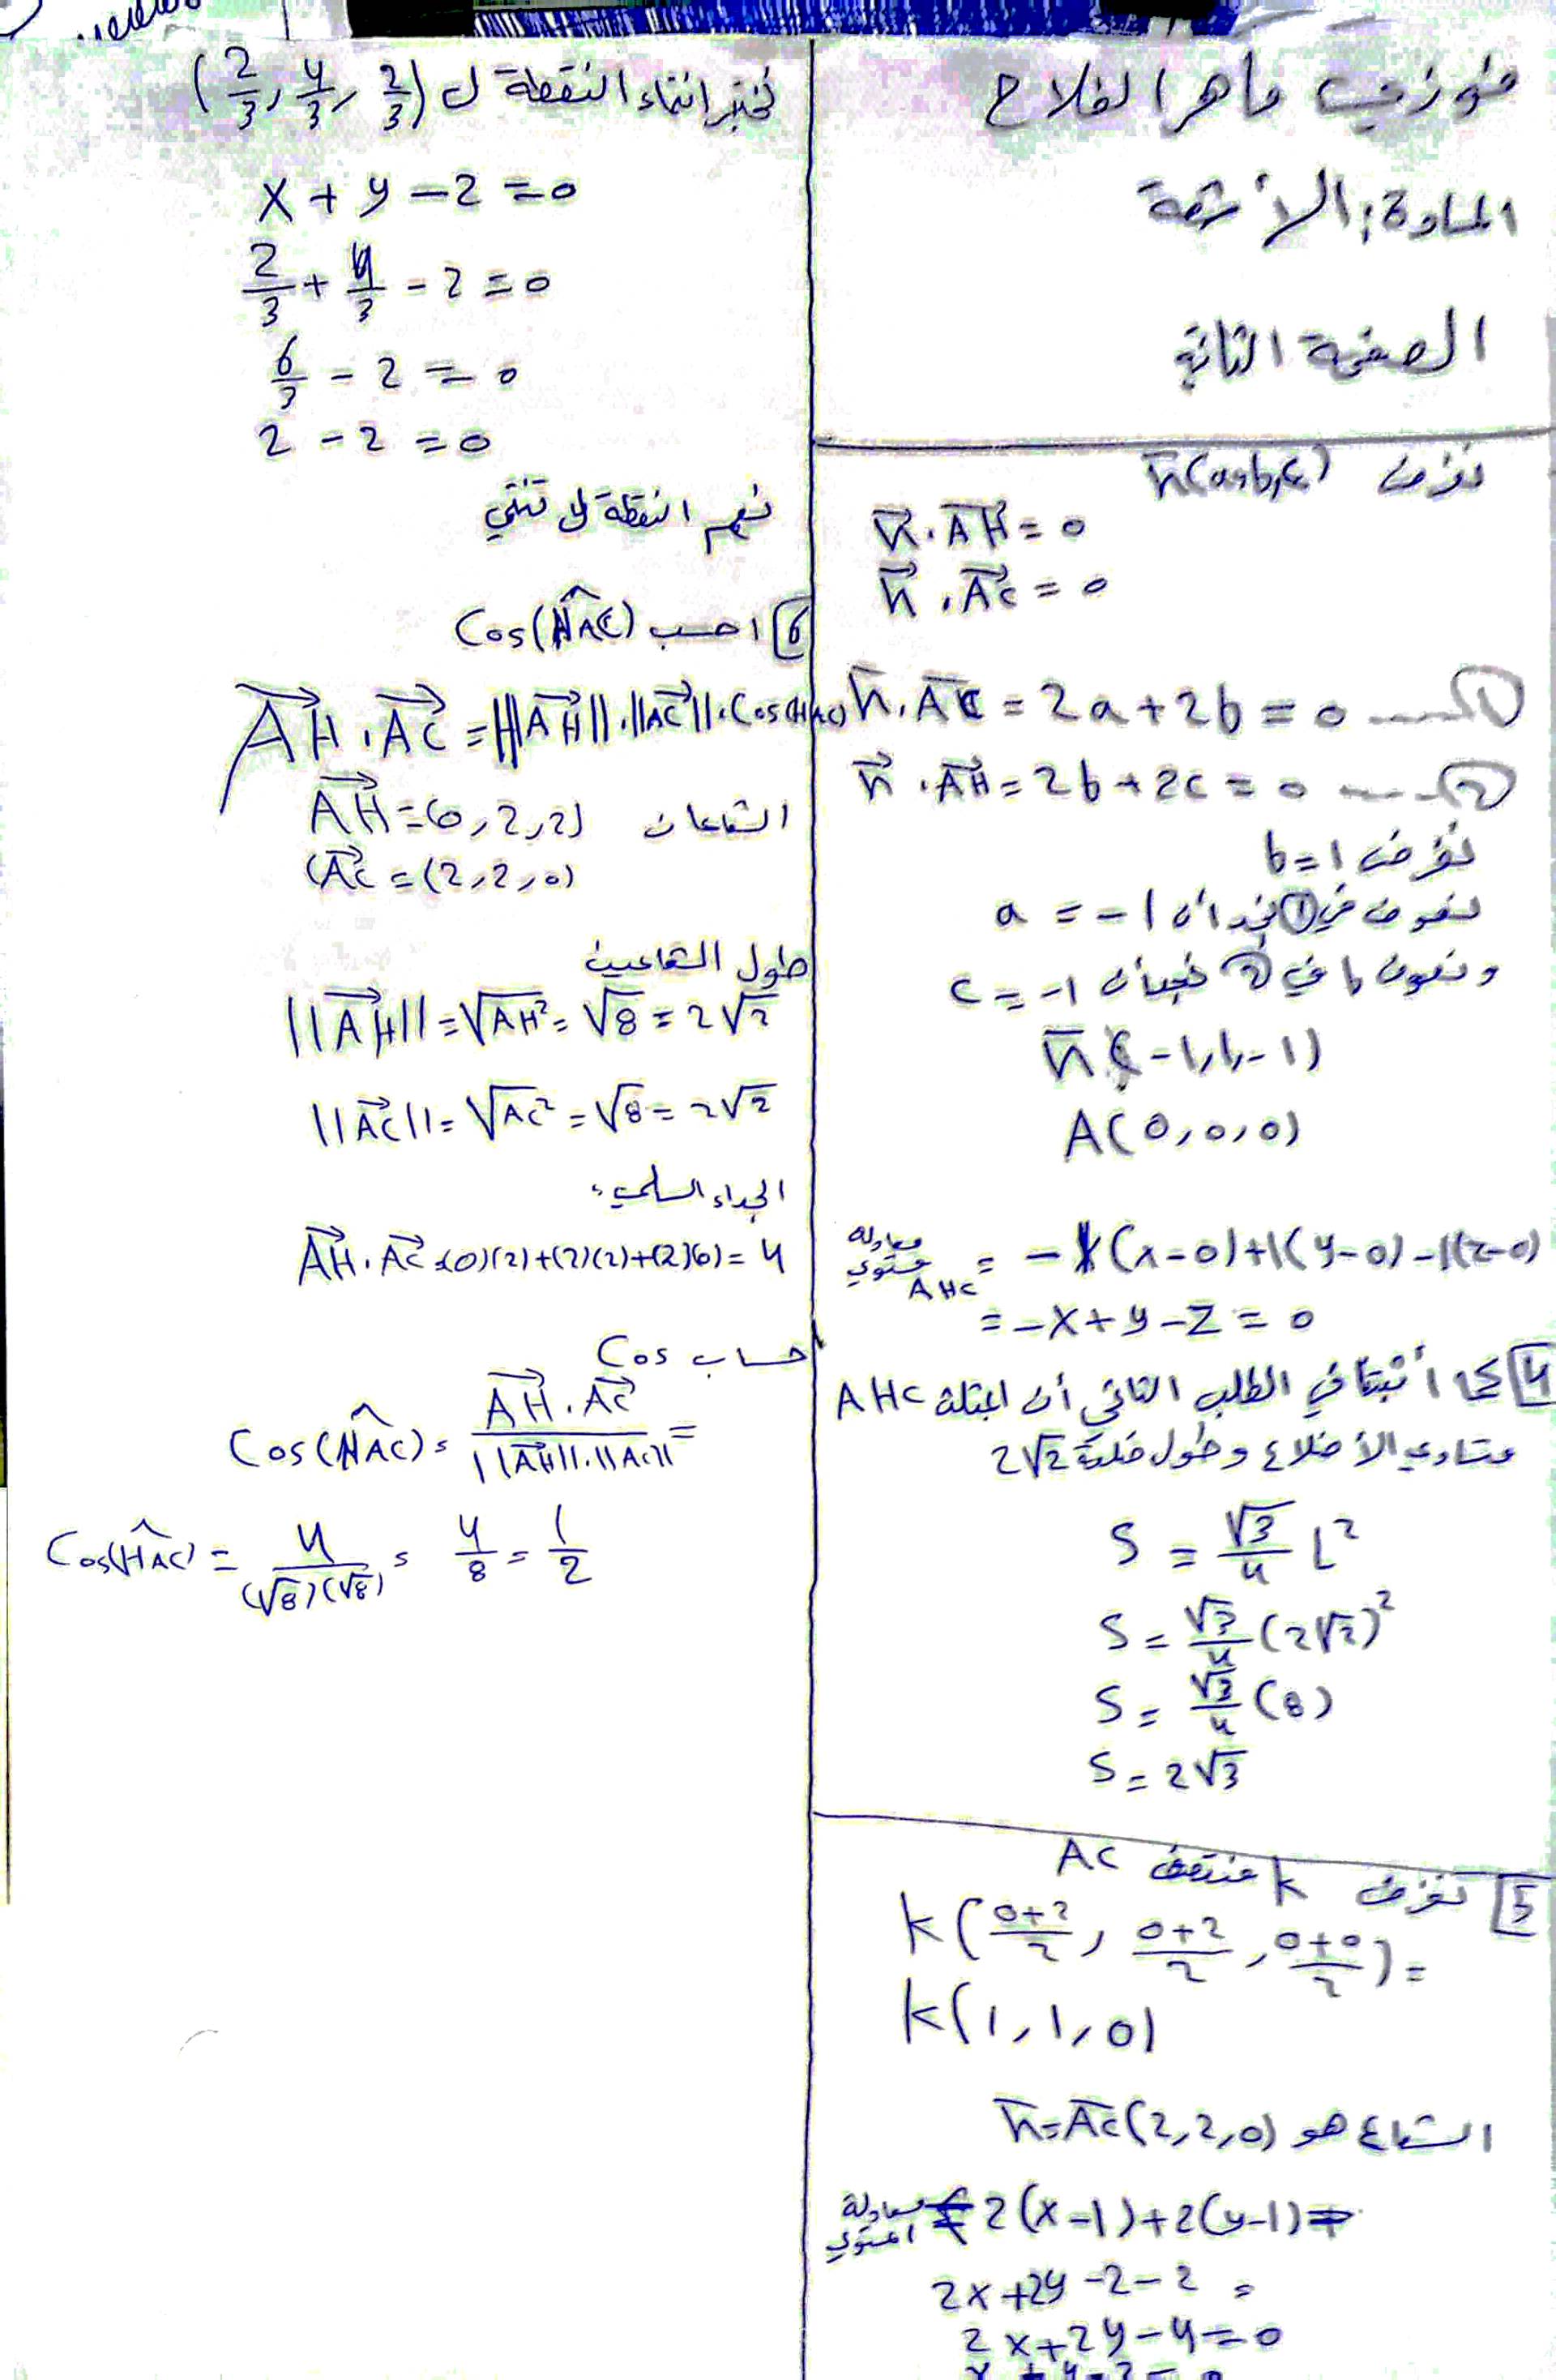 فوزي ماهر الفلاح
المادة: الأشعة
الصفحة الثانية
نفرض n(a,b,c)
n . AH = 0
n . AC = 0
n . AC = 2a + 2b = 0 ... ①
n . AH = 2b + 2c = 0 ... ②
نفرض b = 1
نعوض في ① نجد أن a = -1
ونعوض b في ② نجد أن c = -1
n(-1,1,-1)
A(0,0,0)
معادلة مستوي AHC = -1(x-0)+1(y-0)-1(z-0)
= -x+y-z = 0
4] أثبتنا في الطلب الثاني أن المثلث AHC
متساوي الأضلاع وطول ضلعه 2√2
S = √3/4 L²
S = √3/4 (2√2)²
S = √3/4 (8)
S = 2√3
5] نفرض k منتصف AC
k(0+2/2, 0+2/2, 0+0/2) =
k(1,1,0)
الشعاع هو n = AC(2,2,0)
معادلة المستوي 2(x-1)+2(y-1)=
2x+2y-2-2 =
2x+2y-4=0
x+y-2=0
نختبر انتماء النقطة ل (2/3, 4/3, 2/3)
x+y-2=0
2/3 + 4/3 - 2 = 0
6/3 - 2 = 0
2 - 2 = 0
نعم النقطة تنتمي
6] احسب Cos(HAC)
AH . AC = ||AH|| . ||AC|| . Cos(HAC)
الشعاعان AH = (0,2,2)
AC = (2,2,0)
طول الشعاعين
||AH|| = √AH² = √8 = 2√2
||AC|| = √AC² = √8 = 2√2
الجداء السلمي:
AH . AC = (0)(2)+(2)(2)+(2)(0) = 4
حساب Cos
Cos(HAC) = AH . AC / ||AH|| . ||AC|| =
Cos(HAC) = 4/(√8)(√8) = 4/8 = 1/2